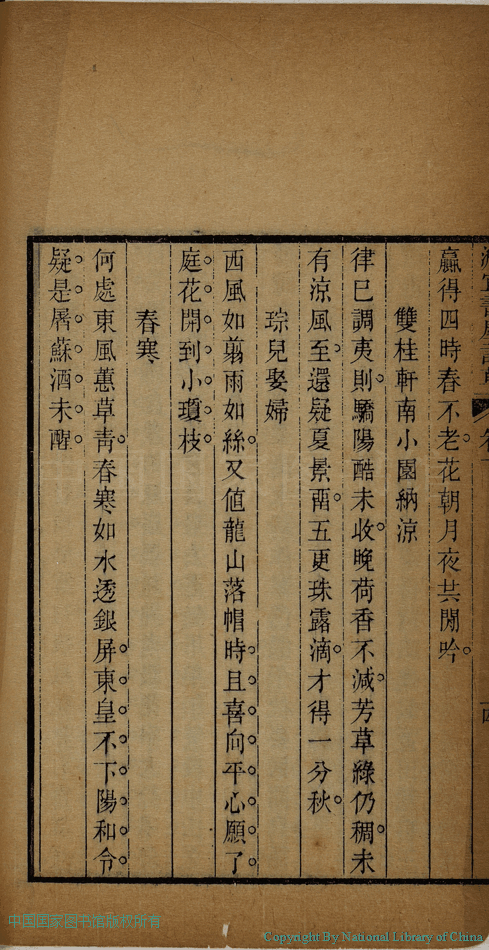 贏得四時春不老花朝月夜共閒吟
雙桂軒南小園納涼
律已調夷則驕陽酷未收晚荷香不減芳草綠仍稠未
有涼風至還疑夏景畱五更珠露滴才得一分秋
琮兒娶婦
西風如翦雨如絲又值龍山落帽時且喜向平心願了
庭花開到小瓊枝
春寒
何處東風蕙草靑春寒如水透銀屏東皇不下陽和令
疑是屠蘇酒未醒
中国国家图书馆版权所有
Copyright By National Library of China